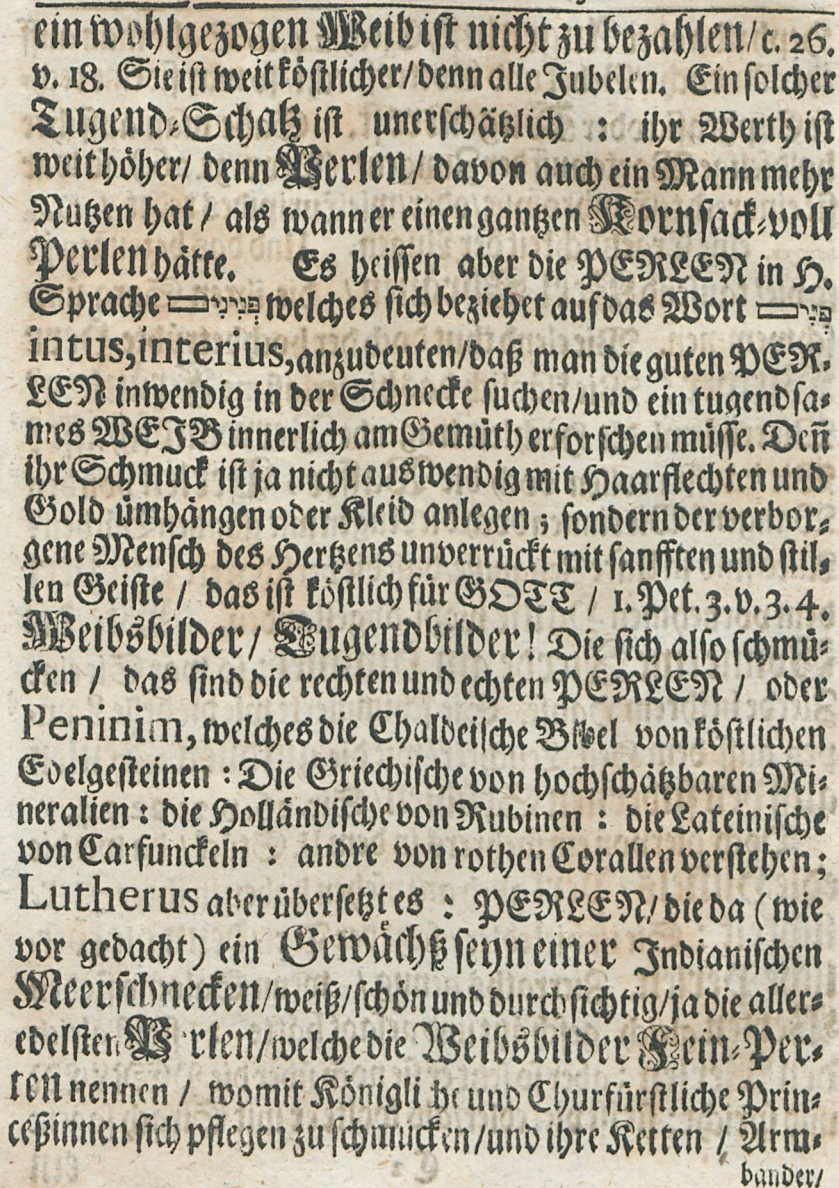 ein wohlgezogen Weib ist nicht zu bezahlen/ c. 26.
v. 18. Sie ist weit köstlicher/ denn alle Jubelen. Ein solcher
Tugend-Schatz ist unerschätzlich : ihr Werth ist
weit höher/ denn Perlen/ davon auch ein Mann mehr
Nutzen hat / als wann er einen gantzen Kornsack-voll
Perlen hätte. Es heissen aber die PERLEN in H.
Sprache פנינים welches sich beziehet auf das Wort
intus, interius, anzudeuten/ daß man die guten PER-
LEN inwendig in der Schnecke suchen/ und ein tugendsa-
mes WEIB innerlich am Gemüth erforschen müsse. Deñ
ihr Schmuck ist ja nicht auswendig mit Haarflechten und
Gold ümhängen oder Kleid anlegen ; sondern der verbor-
gene Mensch des Hertzens unverrückt mit sanfften und stil-
len Geiste / das ist köstlich für GOTT / 1. Pet. 3. v. 3. 4.
Weibsbilder/ Tugendbilder! Die sich also schmü-
cken / das sind die rechten und echten PERLEN / oder
Peninim, welches die Chaldeische Bibel von köstlichen
Edelgesteinen : Die Griechische von hochschätzbaren Mi-
neralien : die Holländische von Rubinen : die Lateinische
von Carfunckeln : andre von rothen Corallen verstehen ;
Lutherus aber übersetzt es : PERLEN/ die da ( wie
vor gedacht ) ein Gewächß seyn einer Indianischen
Meerschnecken/ weiß/ schön und durchsichtig/ ja die aller-
edelsten Perlen/ welche die Weibsbilder Fein-Per-
len nennen / womit Königliche und Churfürstliche Prin-
ceßinnen sich pflegen zu schmücken/ und ihre Ketten / Arm-
bänder/